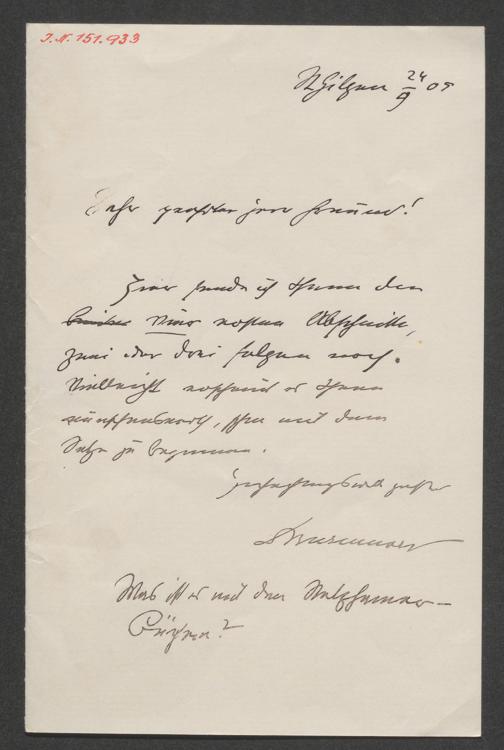 J.N. 151.933
St Gilgen 24/9 05
Sehr geehrter Herr Freund!
Hier sende ich Ihnen die
vier ersten Abschnitte,
zwei oder drei folgen noch.
Vielleicht erscheint es Ihnen
wünschenswerth, schon mit dem
Satze zu beginnen.
Hochachtungsvoll
Was ist es mit den